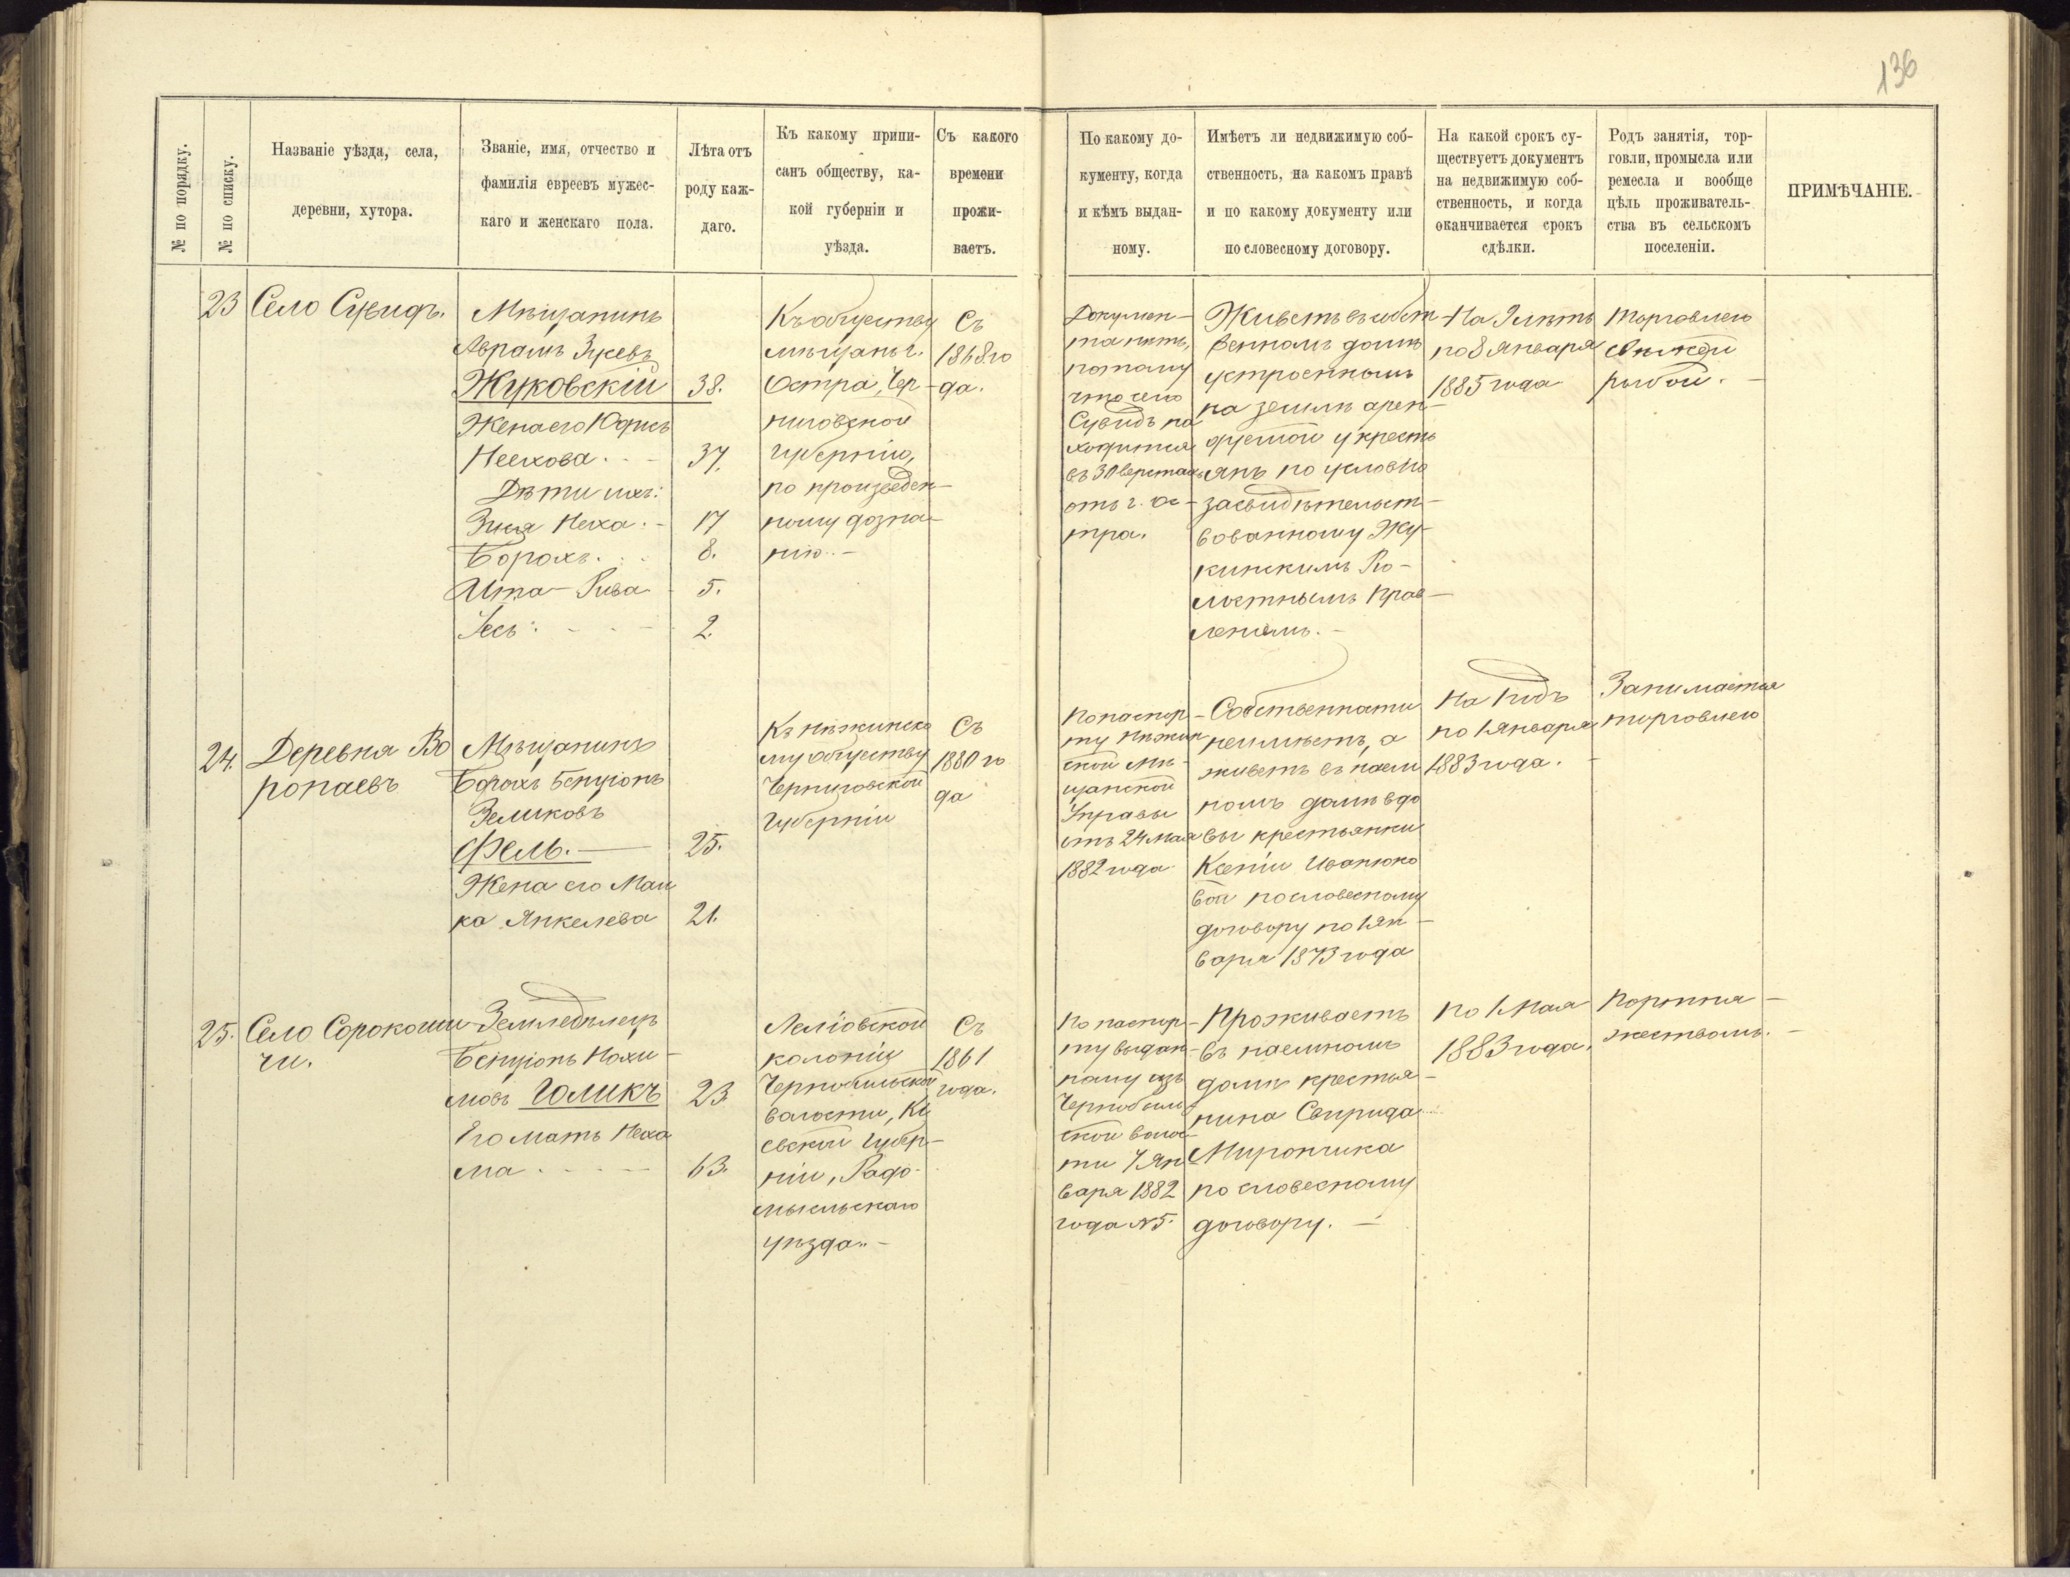 136
№ по порядку.
№ по списку.
Названіе уѣзда, села,
деревни, хутора.
Званіе, имя, отчество и
фамилія евреевъ мужес-
каго и женскаго пола.
Лѣта отъ
роду каж-
даго.
Къ какому припи-
санъ обществу, ка-
кой губерніи и
уѣзда.
Съ какого
времени
прожи-
ваетъ.
По какому до-
кументу, когда
и кѣмъ выдан-
ному.
Имѣетъ ли недвижимую соб-
ственность, на какомъ правѣ
и по какому документу или
по словесному договору.
На какой срокъ су-
ществуетъ документъ
на недвижимую соб-
ственность, и когда
оканчивается срокъ
сдѣлки.
Родъ занятія, тор-
говли, промысла или
ремесла и вообще
цѣль проживатель-
ства въ сельскомъ
поселеніи.
ПРИМѢЧАНІЕ.
23
Село Сувидъ.
Мѣщанинъ
Аврамъ Зусевъ
Жуковскій 38.
Жена его
37.
Дѣти ихъ:
Неха. - 17
Борохъ. 8.
Ита-Рива 5.
2.
Къ обществу
мѣщанъ г.
Остра, Чер-
ниговской
губерніи,
по произведен-
ному дозна-
нію. -
Съ
1868 го
да.
Докумен-
та нѣтъ,
потому
что село
Сувидъ на
ходится
въ 30 верстахъ
отъ г. Ос-
тра.
Живетъ въ собст
венномъ домѣ
устроенномъ
на землѣ арен-
дуемой у кресть
янъ по условію
засвидѣтельст-
вованному Жу-
кинскимъ Во-
лостнымъ Прав-
леніемъ. -
На 3 лѣтъ
по 8 Января
1885 года
Торговлею
рыбой. -
24.
Деревня Во
ропаевъ
Мѣщанинъ
Борохъ Бенціонъ
Зеликовъ
Фель. - 25.
Жена его Мал
ка Янкелева 21.
Къ Нѣжинско
му обществу
Черниговской
губерніи
Съ
1880 го
да
По паспор-
ту Нѣжин
ской Мѣ-
щанской
Управы
отъ 24 Мая
1882 года
Собственности
неимѣетъ, а
живетъ въ наем
номъ домѣ вдо
вы крестьянки
Ксеніи Иванюко
вой по словесному
договору по 1 Ян-
варя 1873 года
На годъ
по 1 января
1883 года.
Занимается
торговлею
25.
Село Сорокоши
чи.
Земледѣлецъ
Бенціонъ Нохи-
мовъ Голикъ 23
Его мать Неха
ма 63.
колоніи
Чернобыльской
волости, Кі
евской губер-
ніи, Радо-
мысльскаго
уѣзда. -
Съ
1861
года.
По паспор-
ту выдан-
ному изъ
Чернобыль
ской волос-
ти 7 Ян
варя 1882
года №5.
Проживаетъ
въ наемномъ
домѣ крестья-
нина Свирида
Мирончика
по словесному
договору. -
По 1 Мая
1883 года.
Портня-
жествомъ. -